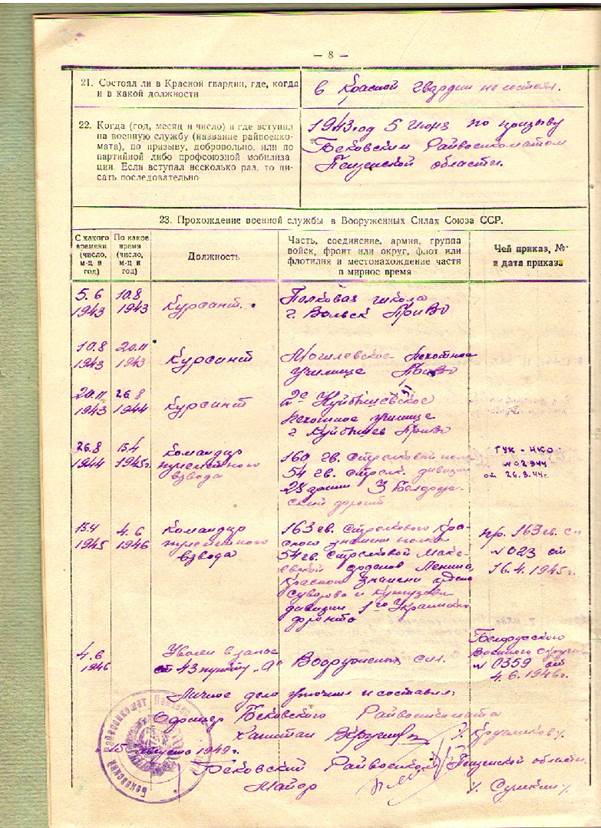 — 8 —
21. Состоял ли в Красной гвардии, где, когда
и в какой должности
В Красной гвардии не состоял.
22. Когда (год, месяц и число) и где вступил
на военную службу (название райвоенко-
мата), по призыву, добровольно, или по
партийной либо профсоюзной мобилиза-
ции. Если вступал несколько раз, то пи-
сать последовательно
1943 год 5 июня по призыву
Бековским Райвоенкоматом
Пензенской области.
23. Прохождение военной службы в Вооруженных Силах Союза ССР.
С какого
времени
(число,
м-ц и
год)
По какое
время
(число,
м-ц и
год)
Должность
Часть, соединение, армия, группа
войск, фронт или округ, флот или
флотилия и местонахождение части
в мирное время
Чей приказ, №
и дата приказа
5.6
1943
10.8
1943
Курсант.
Полковая школа
г. Вольск ПриВО
10.8
1943
20.11
1943
Курсант
Могилевское пехотное
училище ПриВО
20.11
1943
26.8
1944
Курсант
2ое Куйбышевское
пехотное училище
г. Куйбышев ПриВО
26.8
1944
15.4
1945г.
Командир
пулеметного
взвода
160 гв. стрелковый полк
54 гв. стрелк. дивизии
28 армии 3 Белорус-
ский фронт
ГУК - НКО
№ 02944
от 26.8.44г.
15.4
1945
4.6
1946
Командир
пулеметного
взвода
163 гв. стрелкового Кра-
сного знамени полка
54 гв. стрелковой Маке-
евской орденов Ленина,
Красного знамени
Суворова и Кутузова
дивизии 1го Украинского
фронта
пр. 163 гв. с.п
№ 023 от
16.4.1945г.
4.6
1946
Уволен в запас
от 43 "А" Вооруженных сил.
Белорусского
Военного округа
№ 0359 от
4.6.1946г.
Личное дело уточнил и составил:
Бековского Райвоенкомата
Капитан
15 августа 1949г.
Бековский Райвоенком Пензенской области.
Майор